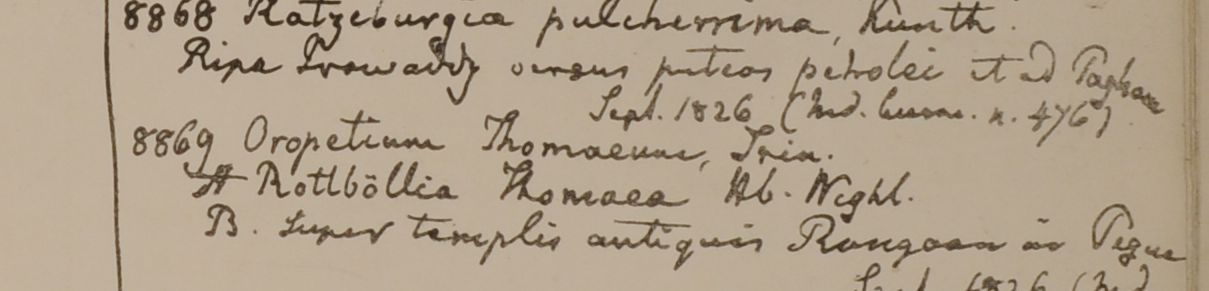 8868 Ratzeburgia pulcherrima, Kunth.
Ripa Irowaddy versus puteos petrolei et ad Pagham
Sept. 1826 (Ind. burm. n. 476)
8869 Oropetium Thomaeum, Trin.
A Rottböllia Thomaea Hb. Wight.
B. super templis antiquis Rangoon in Pegu
Sept. 1826 (Ind